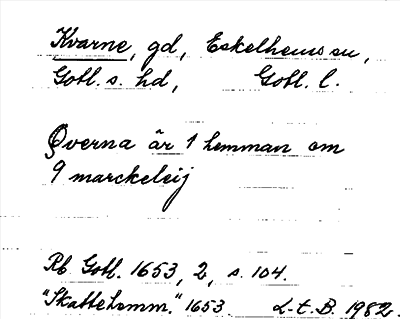 Kvarne, gd, Eskelhems sn,
Gotl. s. hd, Gotl. l.
Qverna är 1 hemman om
9 marckeleij
Rb Gotl. 1653, 2, s. 104.
"Skattehemm." 1653 L-t. B. 1982.